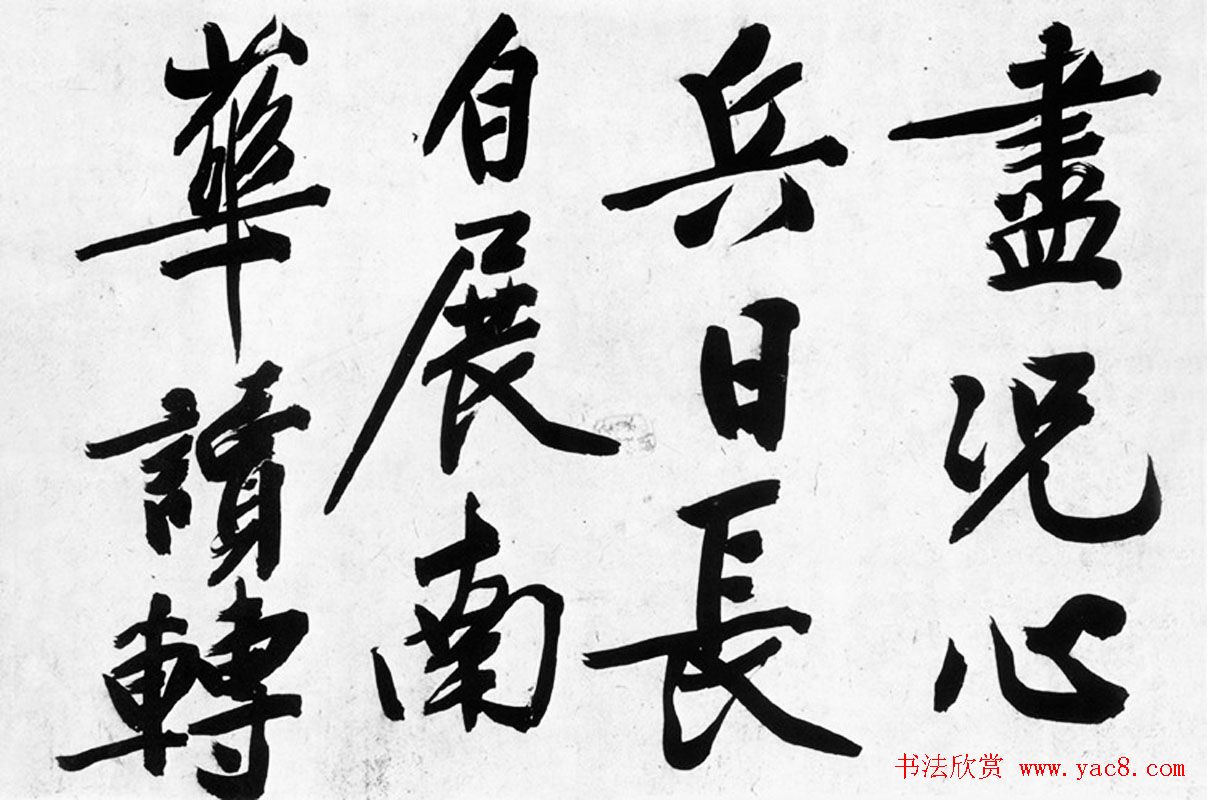 盡況心
兵日長
自展南
華讀轉
书法欣赏 www.yac8.com